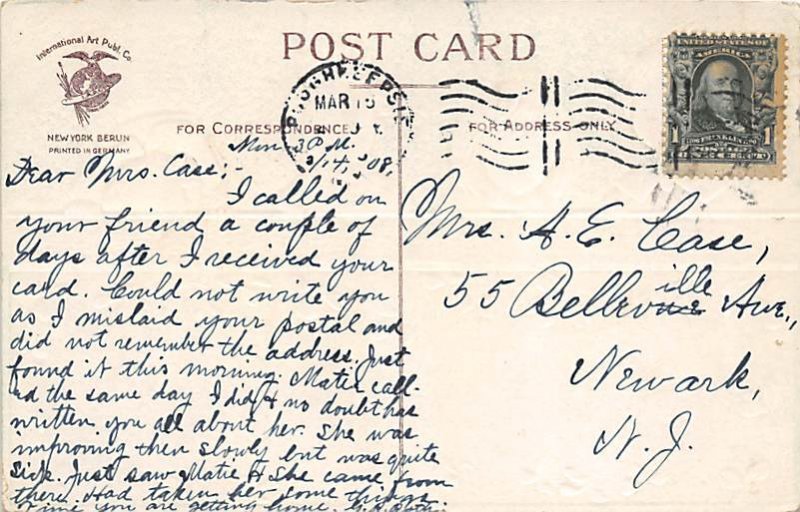 International Art Publ. Co.
NEW YORK BERLIN
PRINTED IN GERMANY
POST CARD
FOR CORRESPONDENCE
FOR ADDRESS ONLY
POUGHKEEPSIE
MAR 15
UNITED STATES OF AMERICA
1 FRANKLIN 1
ONE CENT
3/14, 08,
Dear Mrs. Case;-
I called on
your friend a couple of
days after I received your
card. Could not write you
as I mislaid your postal and
did not remember the address. Just
found it this morning. Matie call-
ed the same day I did & no doubt has
written you all about her. She was
improving then slowly but was quite
sick. Just saw Matie & She came from
there. Had taken her some things
time you are getting home.
Mrs. A. E. Case,
55 Belleville Ave.,
Newark,
N. J.